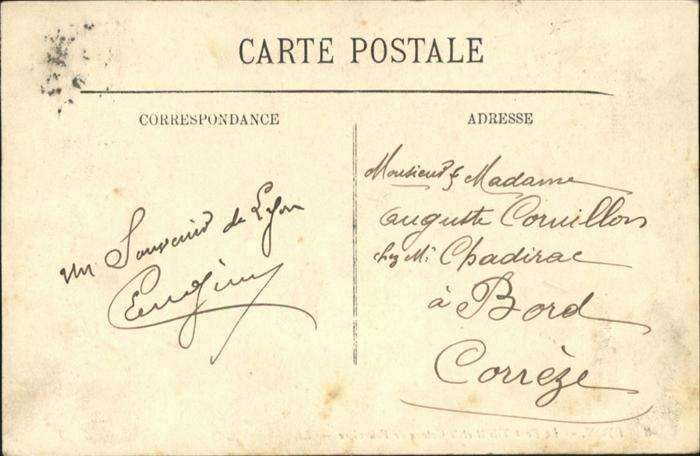 CARTE POSTALE
CORRESPONDANCE
ADRESSE
un Souvenir de Lyon
Monsieur & Madame
auguste
chez Mr Chadirac
à Bord
Corrèze